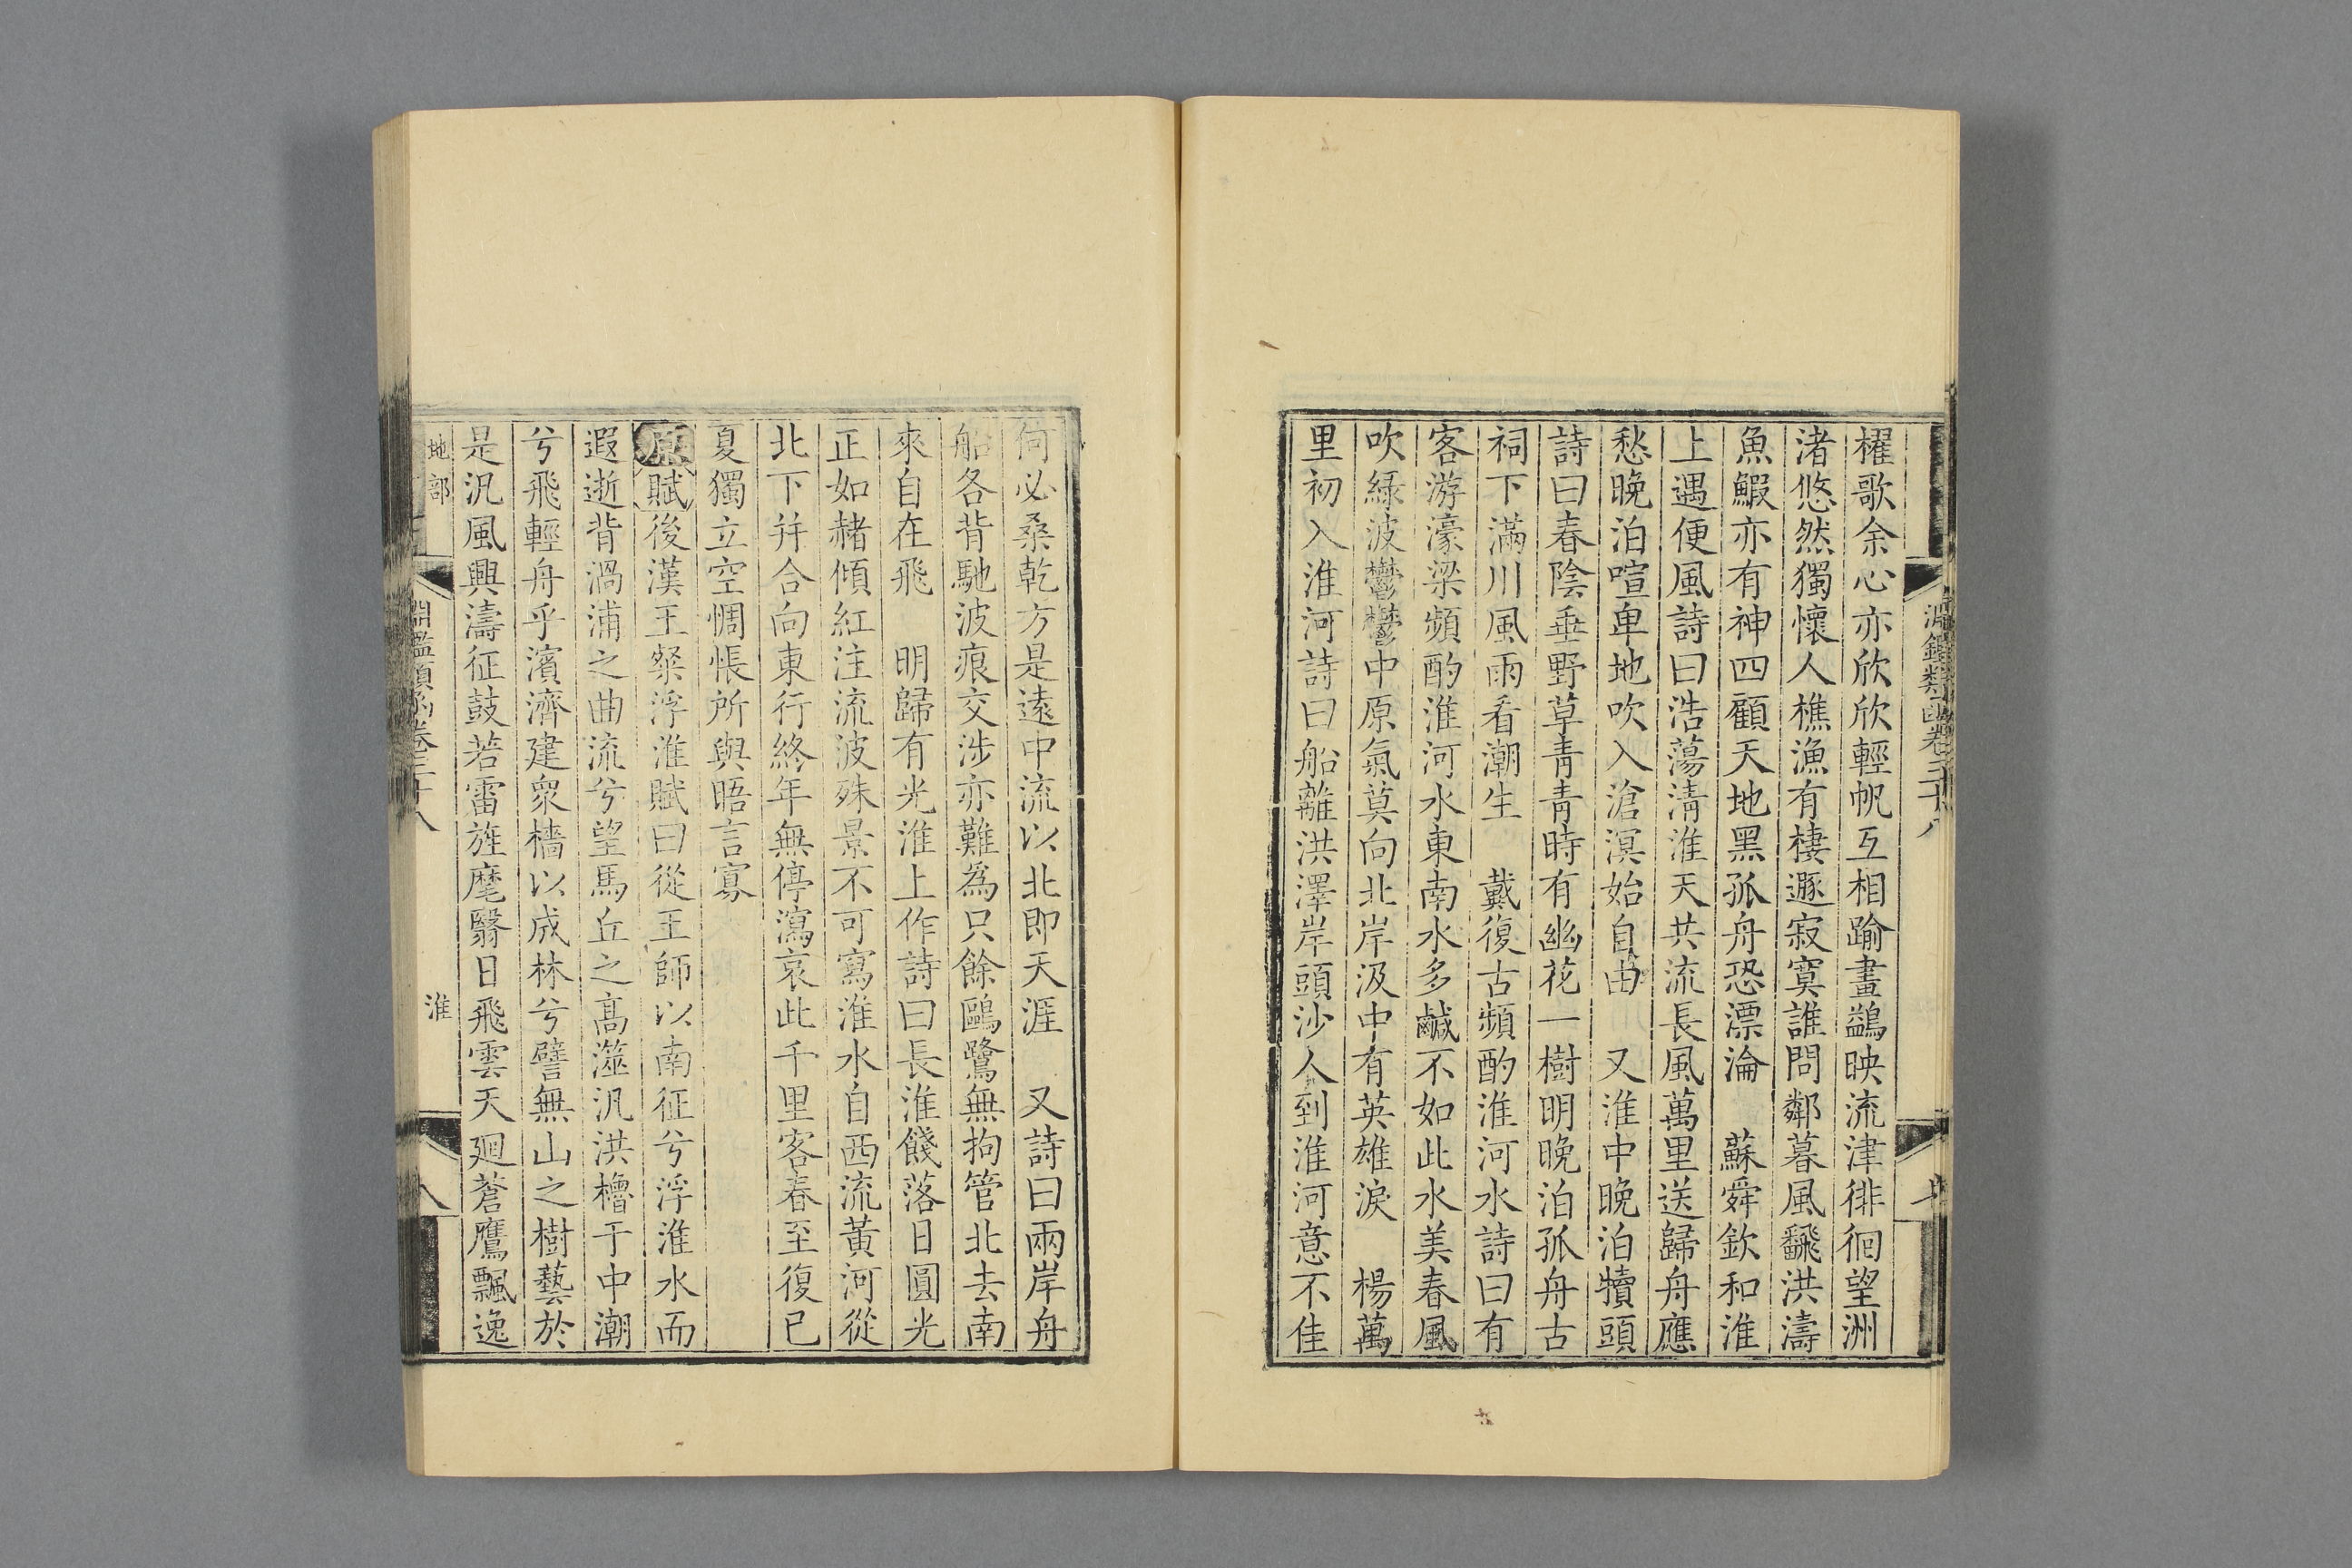 淵鑑類函卷三十八
櫂歌余心亦欣欣輕帆互相踰畫鷁映流津徘徊望洲
渚悠然獨懷人樵漁有棲遯寂寞誰問鄰暮風飜洪濤
魚鰕亦有神四顧天地黑孤舟恐漂淪　蘇舜欽和淮
上遇便風詩曰浩蕩清淮天共流長風萬里送歸舟應
愁晚泊喧卑地吹入滄溟始自由　又淮中晚泊犢頭
詩曰春陰垂野草青青時有幽花一樹明晚泊孤舟古
祠下滿川風雨看潮生　戴復古頻酌淮河水詩曰有
客游濠梁頻酌淮河水東南水多鹹不如此水美春風
吹綠波鬱鬱中原氣莫向北岸汲中有英雄淚　楊萬
里初入淮河詩曰船離洪澤岸頭沙人到淮河意不佳
何必桑乾方是遠中流以北即天涯　又詩曰兩岸舟
船各背馳波痕交涉亦難為只餘鷗鷺無拘管北去南
來自在飛　明歸有光淮上作詩曰長淮餞落日圓光
正如赭傾紅注流波殊景不可寫淮水自西流黃河從
北下并合向東行終年無停瀉哀此千里客春至復已
夏獨立空惆悵所與晤言寡
原賦後漢王粲浮淮賦曰從王師以南征兮浮淮水而
遐逝背渦浦之曲流兮望馬丘之高澨汎洪櫓于中潮
兮飛輕舟乎濱濟建眾檣以成林兮譬無山之樹藝於
是汎風興濤征鼓若雷旌麾翳日飛雲天迴蒼鷹飄逸
地部
淵鑑類函卷三十八
淮
八